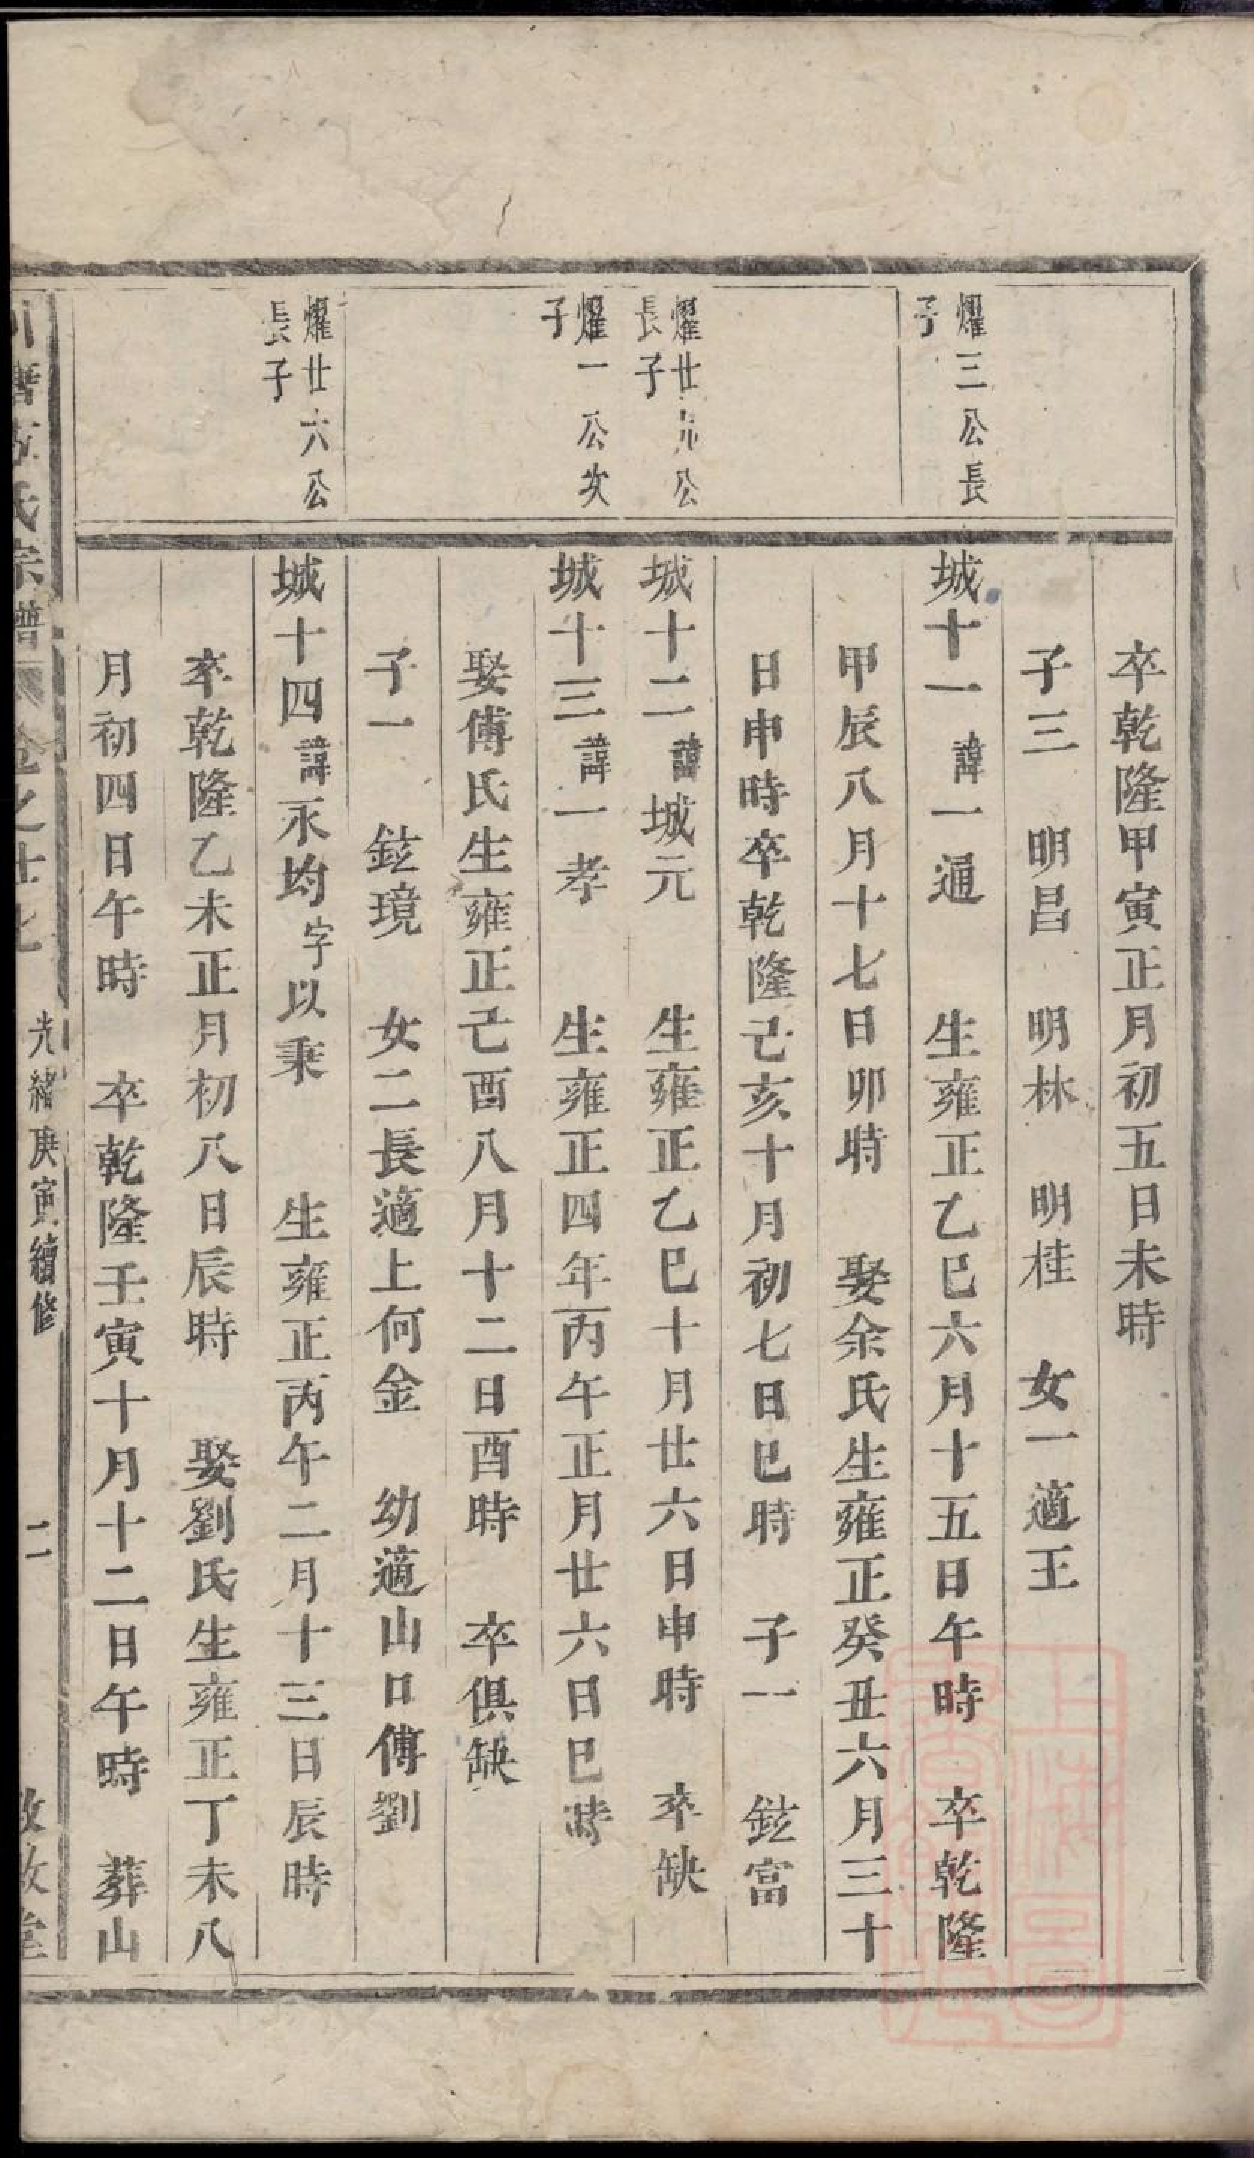 卒乾隆甲寅正月初五日未時
子三 明昌 明林 明桂 女一適王
耀三公長
子
城十一諱一通 生雍正乙巳六月十五日午時 卒乾隆
甲辰八月十七日卯時 娶余氏生雍正癸丑六月三十
日申時卒乾隆己亥十月初七日巳時 子一 鉉富
耀廿九公
長子
城十二諱城元 生雍正乙巳十月廿六日申時 卒缺
耀一公次
子
城十三諱一孝 生雍正四年丙午正月廿六日巳時
娶傅氏生雍正己酉八月十二日酉時 卒俱缺
子一 鉉境 女二長適上何金 幼適山口傅劉
耀廿六公
長子
城十四諱永均字以乘 生雍正丙午二月十三日辰時
卒乾隆乙未正月初八日辰時 娶劉氏生雍正丁未八
月初四日午時 卒乾隆壬寅十月十二日午時 葬山
氏宗譜 卷之廿七 光緒庚寅續修 二 堂